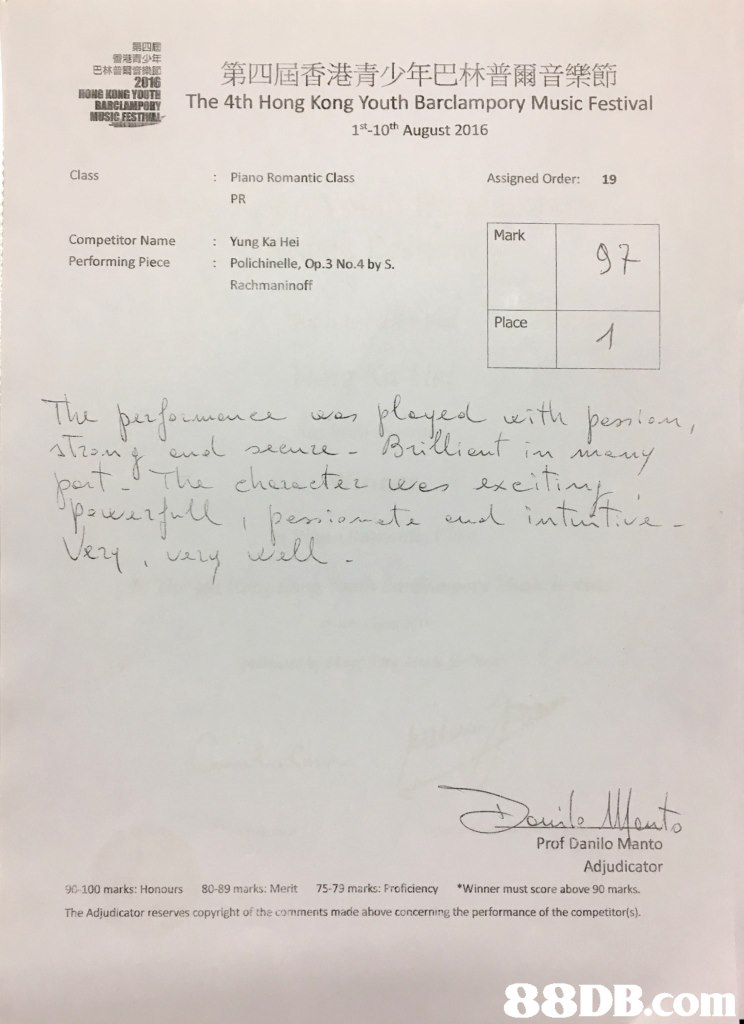 第四屆
香港青少年
巴林普爾音樂節
2016
HONG KONG YOUTH
BARCLAMPORY
MUSIC FESTIVAL
第四屆香港青少年巴林普爾音樂節
The 4th Hong Kong Youth Barclampory Music Festival
1st-10th August 2016
Class : Piano Romantic Class
PR
Assigned Order: 19
Competitor Name : Yung Ka Hei
Performing Piece : Polichinelle, Op.3 No.4 by S.
Rachmaninoff
Mark 97
Place 1
The performance was played with passion,
strong and secure - Brillient in many
part - The character was exciting
Powerfull, passionate and intuitive -
Very, very well -
Danilo Manto
Prof Danilo Manto
Adjudicator
90-100 marks: Honours 80-89 marks: Merit 75-79 marks: Proficiency *Winner must score above 90 marks.
The Adjudicator reserves copyright of the comments made above concerning the performance of the competitor(s).
88DB.com